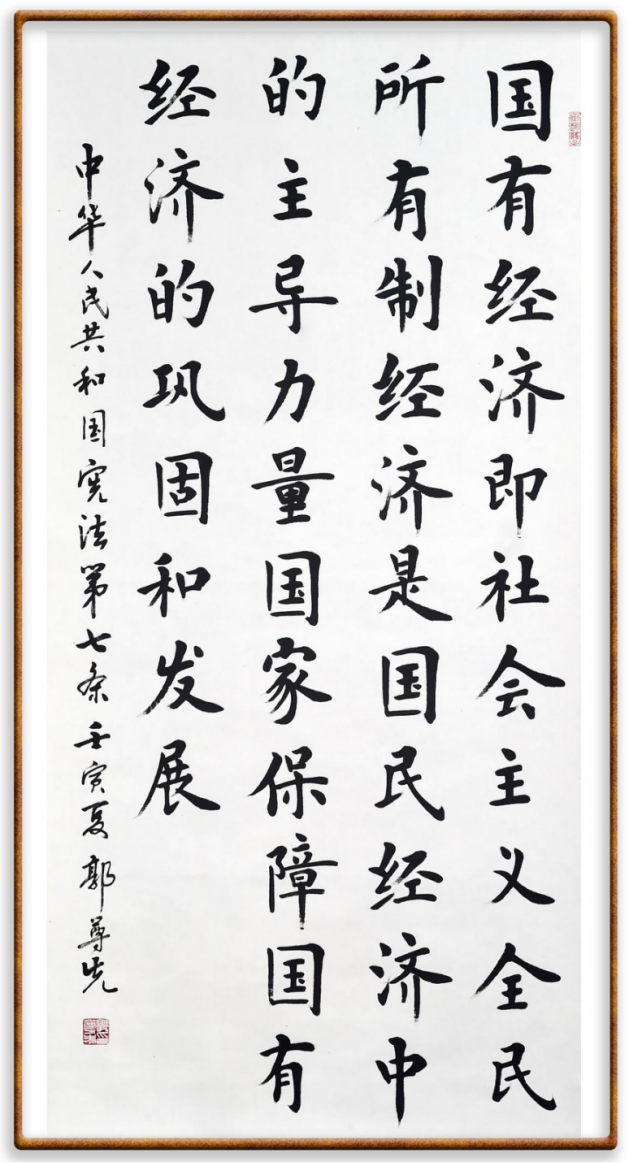 国有经济即社会主义全民
所有制经济是国民经济中
的主导力量国家保障国有
经济的巩固和发展
中华人民共和国宪法第七条壬寅夏郭尊先